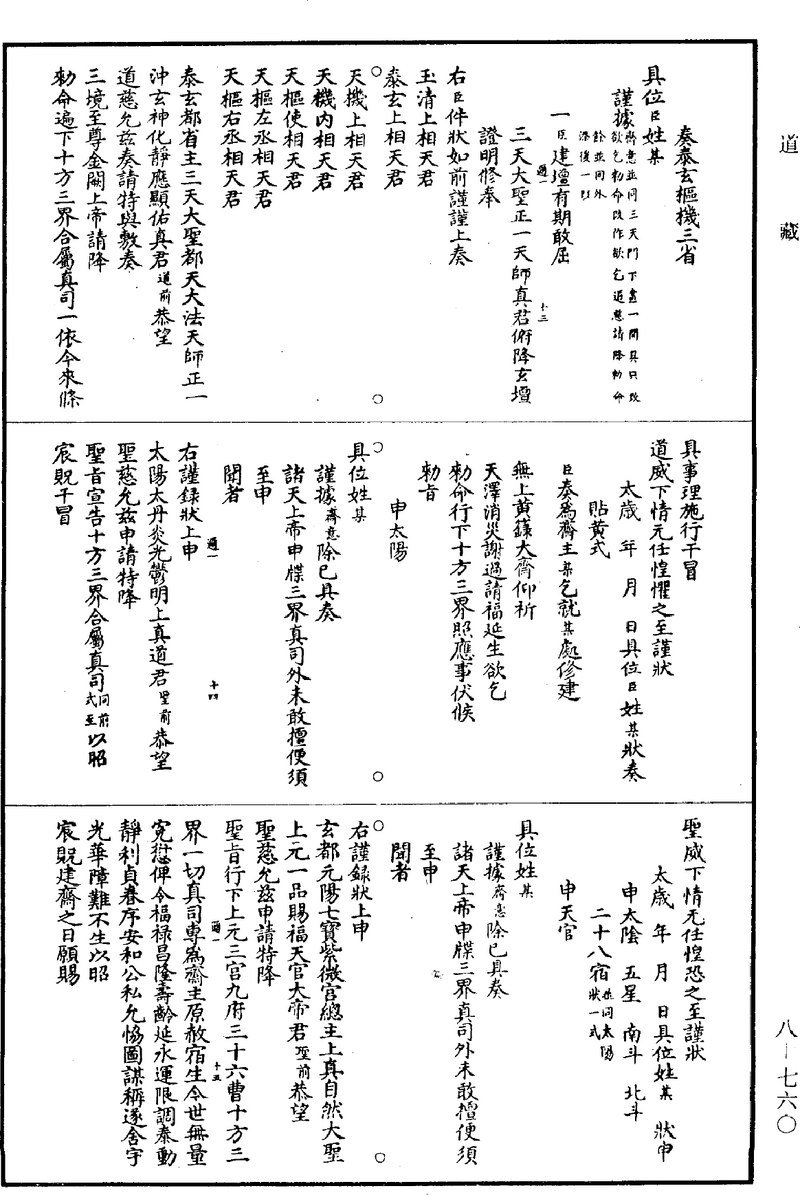 道藏
八—七六〇
奏泰玄樞機三省
具位臣姓某
謹據齋意並同三天門下畫一間具只改
欲乞勑命改作欲乞道慈請降勑命
餘並同外
深後一則
一臣建壇有期敢屈
三天大聖正一天師真君俯降玄壇
證明修奉
右臣件狀如前謹謹上奏
玉清上相天君
泰玄上相天君
天機上相天君
天機內相天君
天樞使相天君
天樞左丞相天君
天樞右丞相天君
泰玄都省主三天大聖都天大法天師正一
沖玄神化靜應顯佑真君道前恭望
道慈允茲奏請特與敷奏
三境至尊金闕上帝請降
勑命遍下十方三界合屬真司一依今來條
具事理施行干冒
道威下情无任惶懼之至謹狀
太歲年月日具位臣姓某狀奏
貼黃式
臣奏為齋主某乞就某處修建
無上黃籙大齋仰祈
天澤消災謝過請福延生欲乞
勑命行下十方三界照應事伏候
勑旨
申太陽
具位姓某
謹據齋意除已具奏
諸天上帝申牒三界真司外未敢擅便須
至申
聞者
右謹錄狀上申
太陽太丹炎光鬱明上真道君聖前恭望
聖慈允茲申請特降
聖旨宣告十方三界合屬真司同前式至以昭
宸貺干冒
聖威下情无任惶恐之至謹狀
太歲年月日具位姓某狀申
申太陰五星南斗北斗
二十八宿並同太陽狀一式
申天官
具位姓某
謹據齋意除已具奏
諸天上帝申牒三界真司外未敢擅便須
至申
聞者
右謹錄狀上申
玄都元陽七寶紫微宮總主上真自然大聖
上元一品賜福天官大帝君聖前恭望
聖慈允茲申請特降
聖旨行下上元三宮九府三十六曹十方三
界一切真司專為齋主原赦宿生今世無量
冤愆俾令福祿昌隆壽齡延永運限調泰動
靜利貞眷序安和公私允恊圖謀稱遂舍宇
光華障難不生以昭
宸貺建齋之日願賜